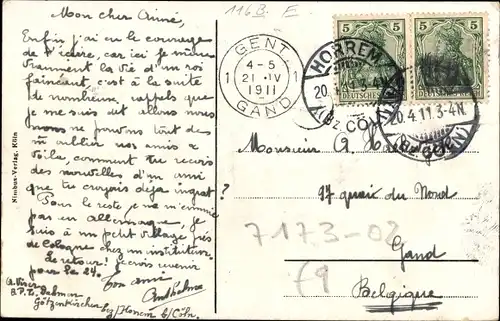 116 B. E
Mon cher Aimé,
Enfin j'ai eu le courage
de t'écrire, car ici je mène
vraiment la vie d'un roi
fainéant, c'est à la suite
de nombreux rappels que
je me suis dit allons nous
m'oublier nos amis
Voila, comment tu reçois
des nouvelles d'un ami
que tu croyais déjà ingrat?
Pour le reste je ne m'ennuie
pas en Allemagne, je
suis à un petit village près
de Cologne chez un instituteur.
Le retour! Je crois revenir
pour le 24.
ton ami
B.P.L.
Götzenkirchen
bei/Horrem b/Cöln.
Nimbus-Verlag, Köln
GENT
4-5
1 21 IV 1
1911
GAND
HORREM
20.
(Bz. CÖLN)
5 5
5 5
DEUTSCHES
20.4.11.3-4N.
(Bz. CÖLN)
Monsieur A.
97 quai du Nord
7173-02
Gand
f9
Belgique